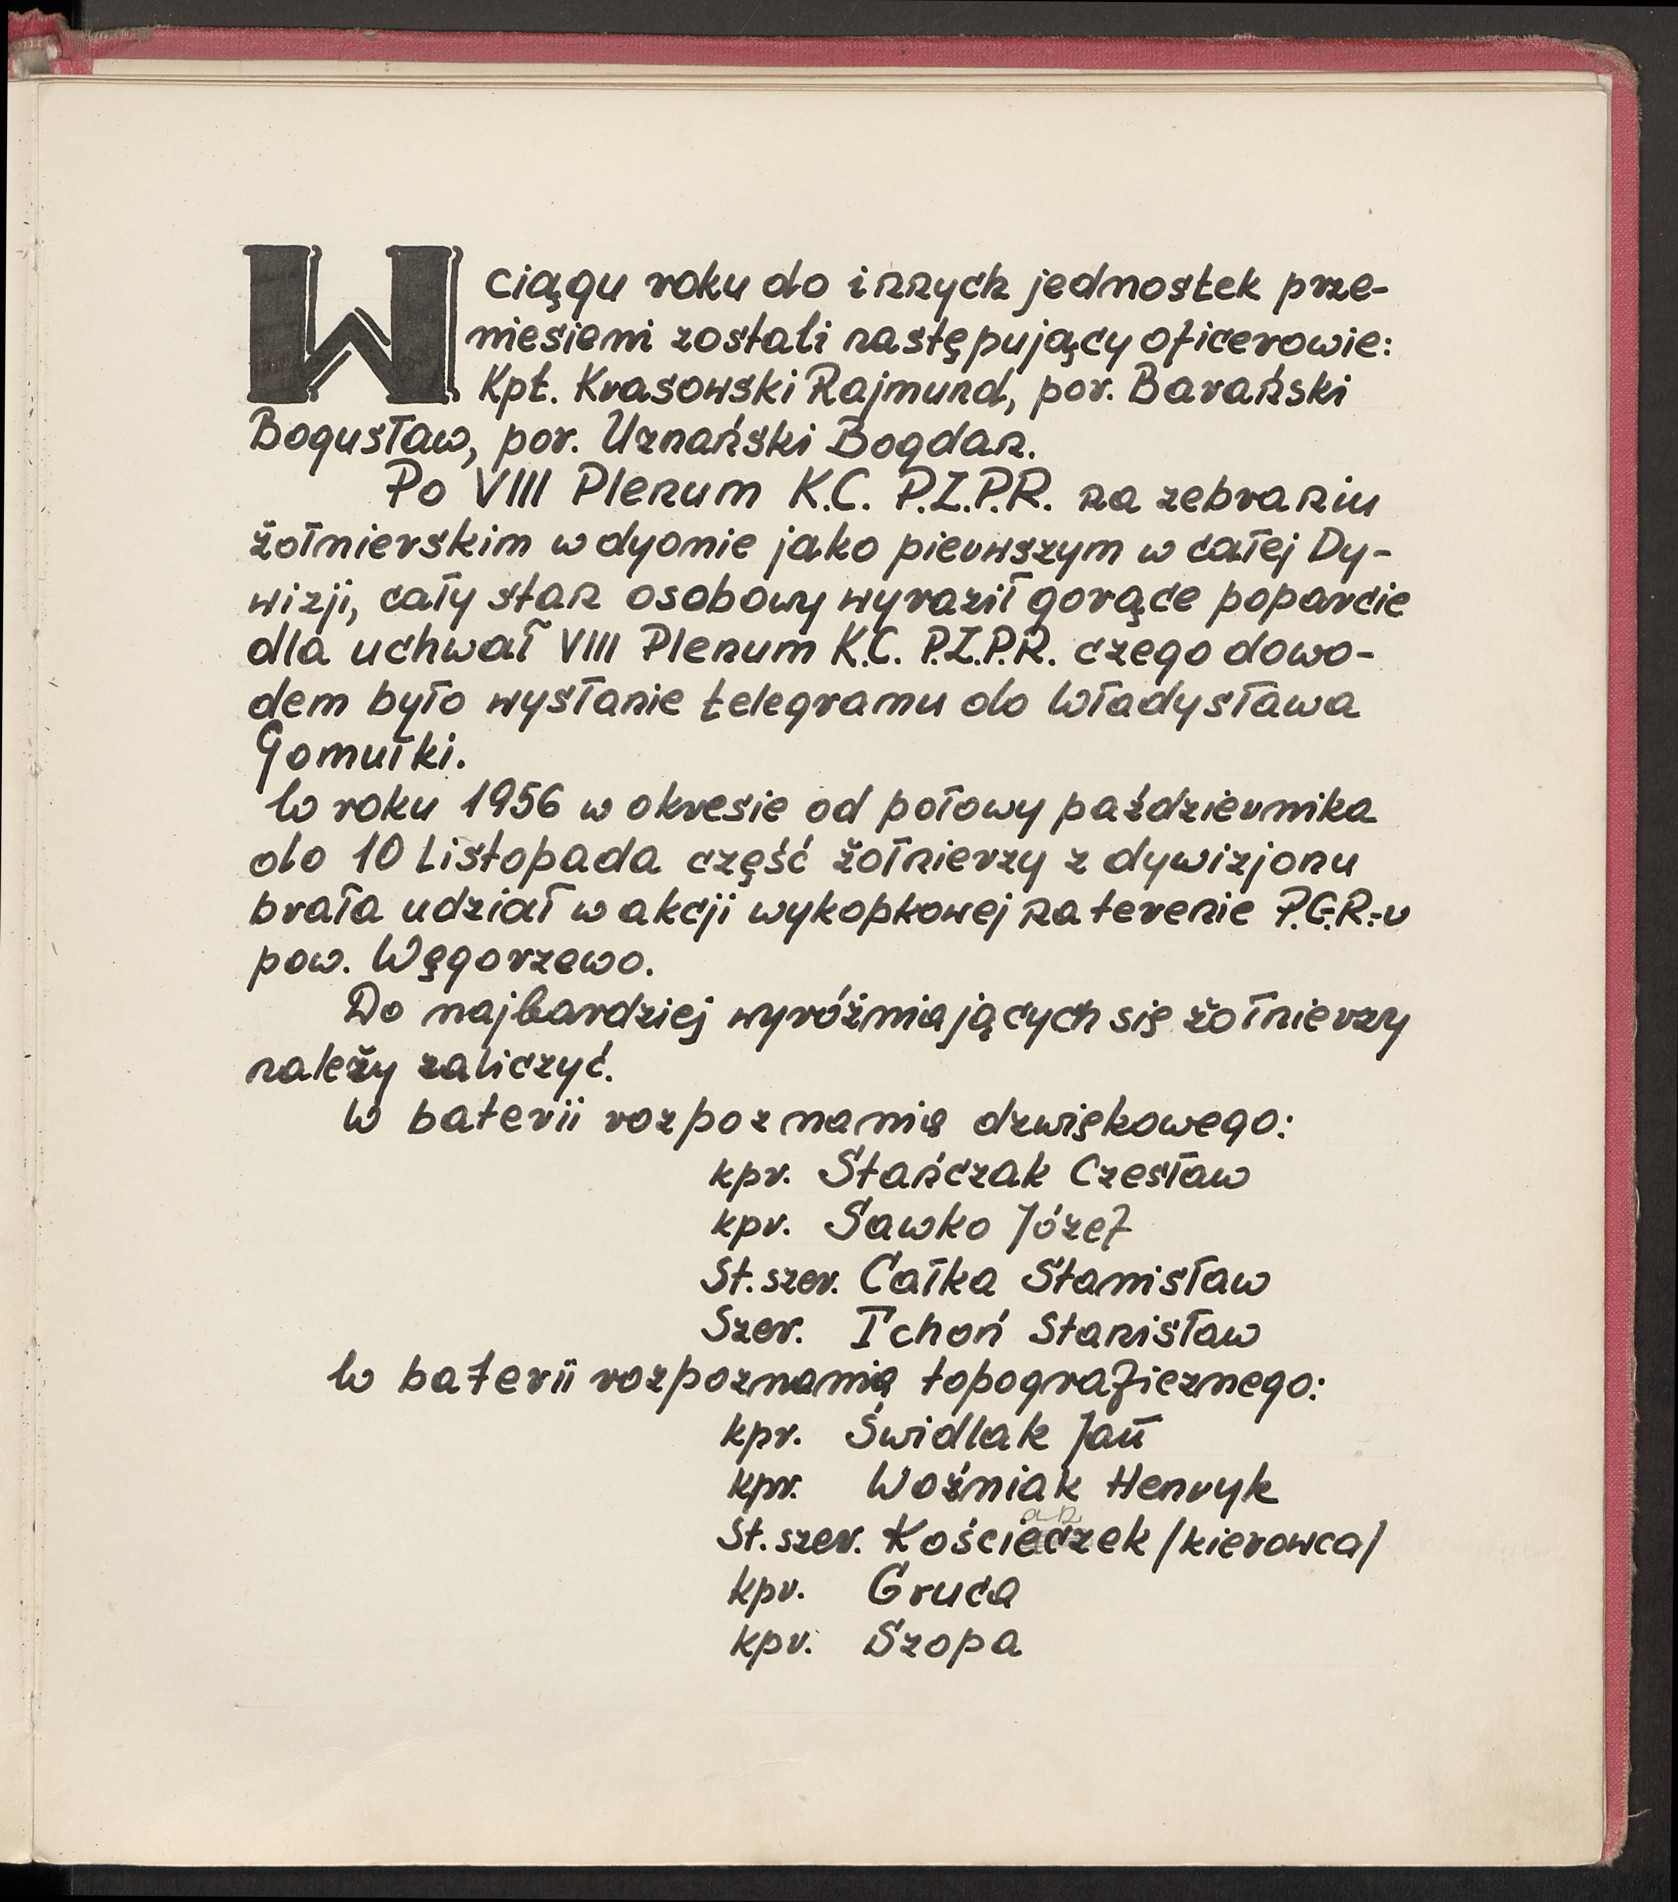 W ciągu roku do innych jednostek prze-
niesieni zostali następujący oficerowie:
Kpt. Krasowski Rajmund, por. Barański
Bogusław, por. Uznański Bogdan.
Po VIII Plenum K.C. P.Z.P.R. na zebraniu
żołnierskim w dyonie jako pierwszym w całej Dy-
wizji, cały stan osobowy wyraził gorące poparcie
dla uchwał VIII Plenum K.C. P.Z.P.R. czego dowo-
dem było wysłanie telegramu do Władysława
Gomułki.
W roku 1956 w okresie od połowy października
do 10 Listopada część żołnierzy z dywizjonu
brała udział w akcji wykopkowej na terenie P.G.R.-u
pow. Węgorzewo.
Do najbardziej wyróżniających się żołnierzy
należy zaliczyć.
W baterii rozpoznania dzwiękowego:
kpr. Stańczak Czesław
kpr. Sawko Józef
St. szer. Całka Stanisław
Szer. Tchoń Stanisław
W baterii rozpoznania topograficznego:
kpr. Świdlak Jan
kpr. Woźniak Henryk
St. szer. Kościeczek /kierowca/
kpr. Gruca
kpr. Szopa